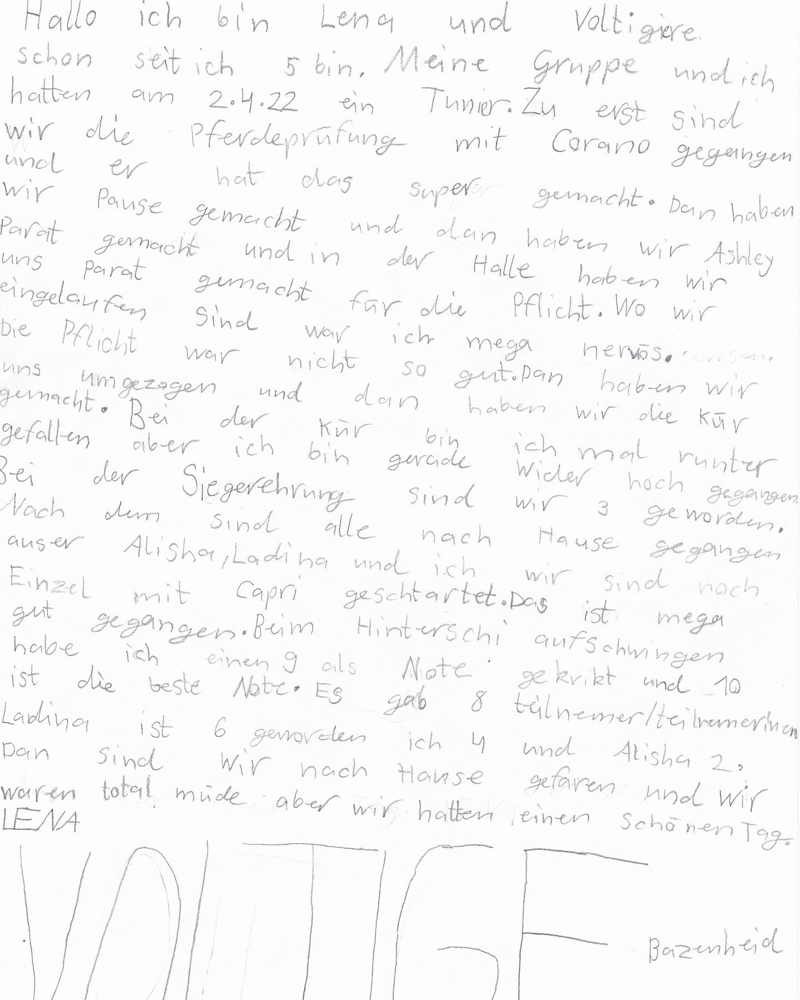 Hallo ich bin Lena und Voltigiere
schon seit ich 5 bin. Meine Gruppe und ich
hatten am 2.4.22 ein Tunier. Zu erst sind
wir die Pferdeprüfung mit Corano gegangen
und er hat das super gemacht. Dan haben
wir Pause gemacht und dan haben wir Ashley
Parat gemacht und in der Halle haben wir
uns Parat gemacht für die Pflicht. Wo wir
eingelaufen sind war ich mega nervös.
Die Pflicht war nicht so gut. Dan haben wir
uns umgezogen und dan haben wir die Kür
gemacht. Bei der Kür bin ich mal runter
gefallen aber ich bin gerade wider hoch gegangen.
Bei der Siegerehrung sind wir 3 geworden.
Nach dem sind alle nach Hause gegangen
auser Alisha, Ladina und ich wir sind noch
Einzel mit Capri geschtartet. Das ist mega
gut gegangen. Beim Hinterschi aufschwingen
habe ich einen 9 als Note gekrikt und 10
ist die beste Note. Es gab 8 teilnemer/teilnemerinen
Ladina ist 6 geworden ich 4 und Alisha 2.
Dan sind wir nach Hause gefaren und wir
waren total müde aber wir hatten einen schönen Tag.
LENA
VOLTIGE
Bazenheid